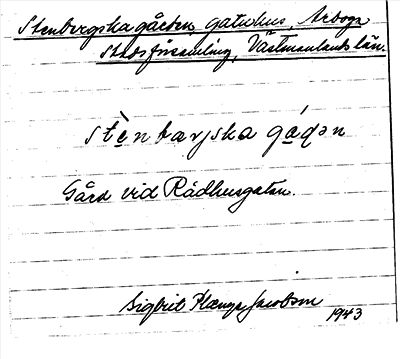 Stenbergska gården, gatuhus, Arboga
Stadsförsamling, Västmanlands län.
stènbærjska gádən
Gård vid Rådhusgatan.
Sigbrit Plænge Jacobson
1943